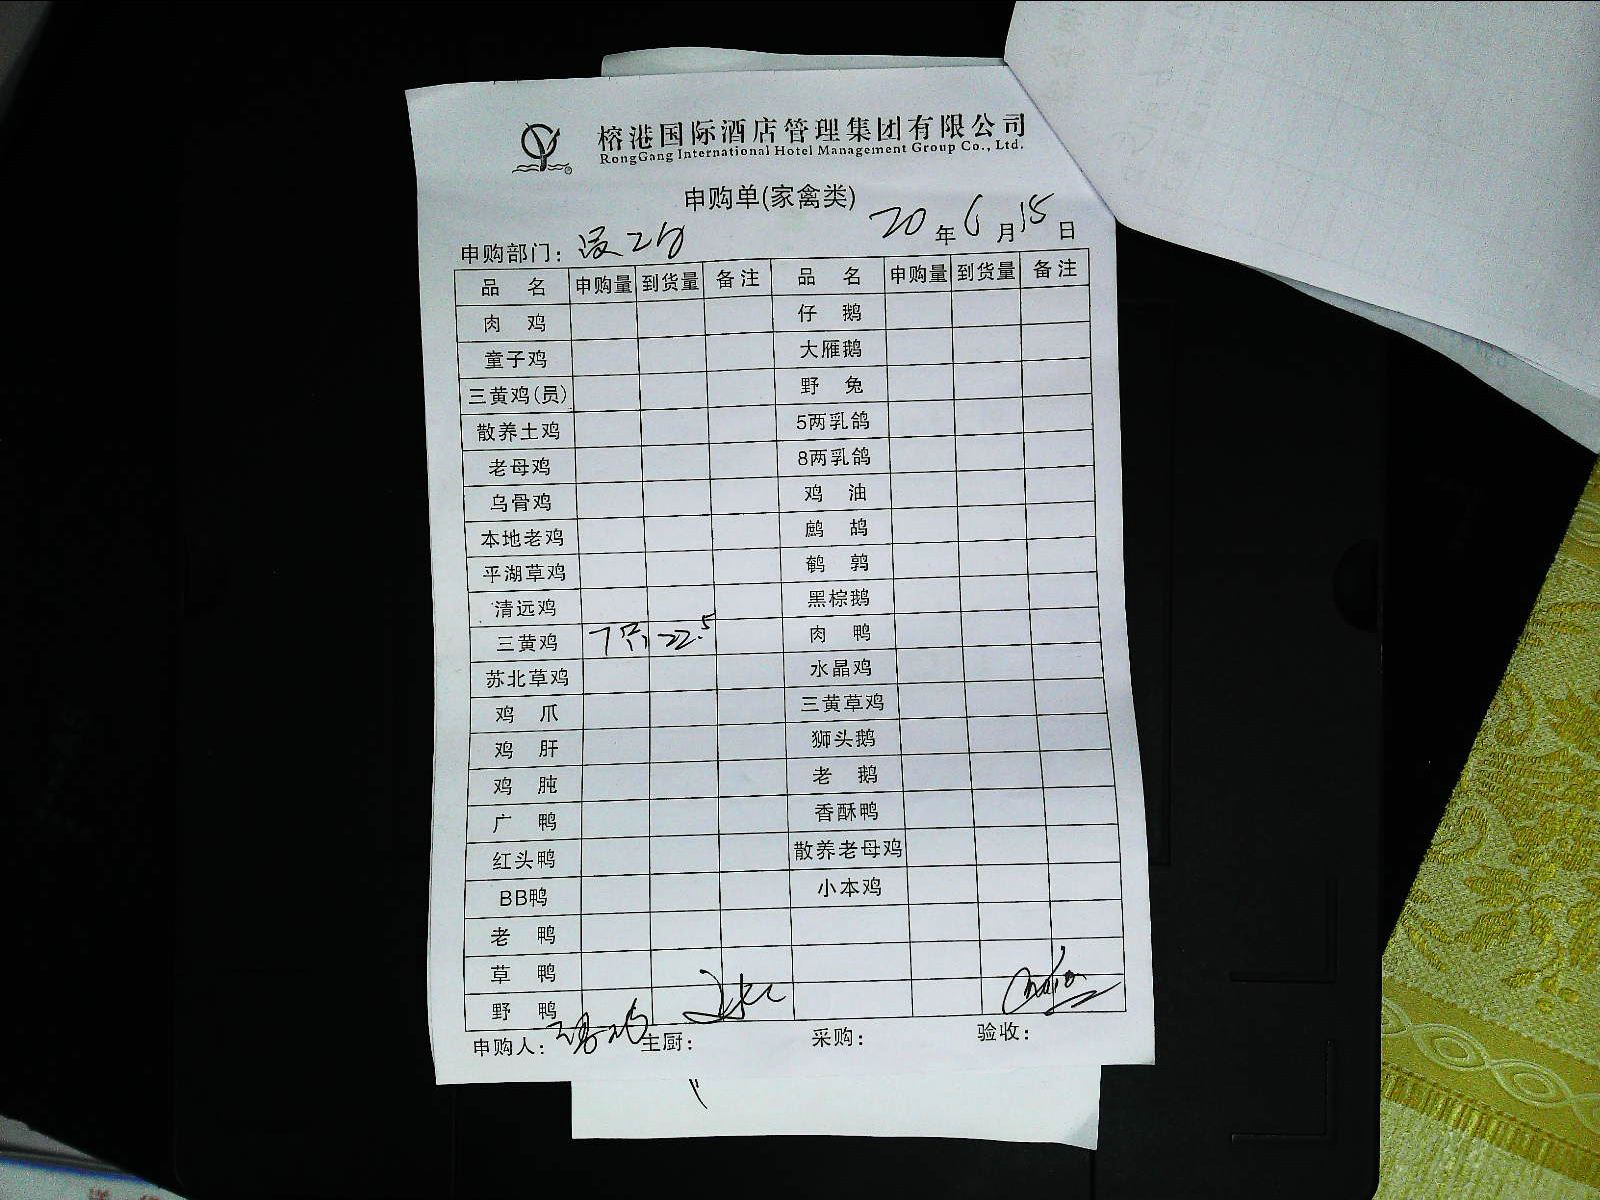 榕港国际酒店管理集团有限公司
RongGang International Hotel Management Group Co., Ltd.
申购单(家禽类)
申购部门： 20年6月15日
品名 申购量 到货量 备注 品名 申购量 到货量 备注
肉鸡 仔鹅
童子鸡 大雁鹅
三黄鸡(员) 野兔
散养土鸡 5两乳鸽
老母鸡 8两乳鸽
乌骨鸡 鸡油
本地老鸡 鹧鸪
平湖草鸡 鹌鹑
清远鸡 黑棕鹅
三黄鸡 7只 22.5 肉鸭
苏北草鸡 水晶鸡
鸡爪 三黄草鸡
鸡肝 狮头鹅
鸡肫 老鹅
广鸭 香酥鸭
红头鸭 散养老母鸡
BB鸭 小本鸡
老鸭
草鸭
野鸭
申购人： 主厨： 采购： 验收：